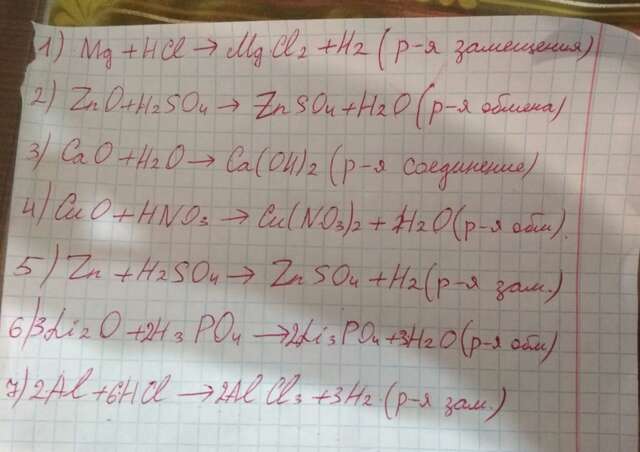 1) Mg + HCl → MgCl2 + H2 (р-я замещения)
2) ZnO + H2SO4 → ZnSO4 + H2O (р-я обмена)
3) CaO + H2O → Ca(OH)2 (р-я соединение)
4) CuO + HNO3 → Cu(NO3)2 + H2O (р-я обм).
5) Zn + H2SO4 → ZnSO4 + H2 (р-я зам.)
6) 3Li2O + 2H3PO4 → 2Li3PO4 + 3H2O (р-я обм)
7) 2Al + 6HCl → 2AlCl3 + 3H2. (р-я зам.)